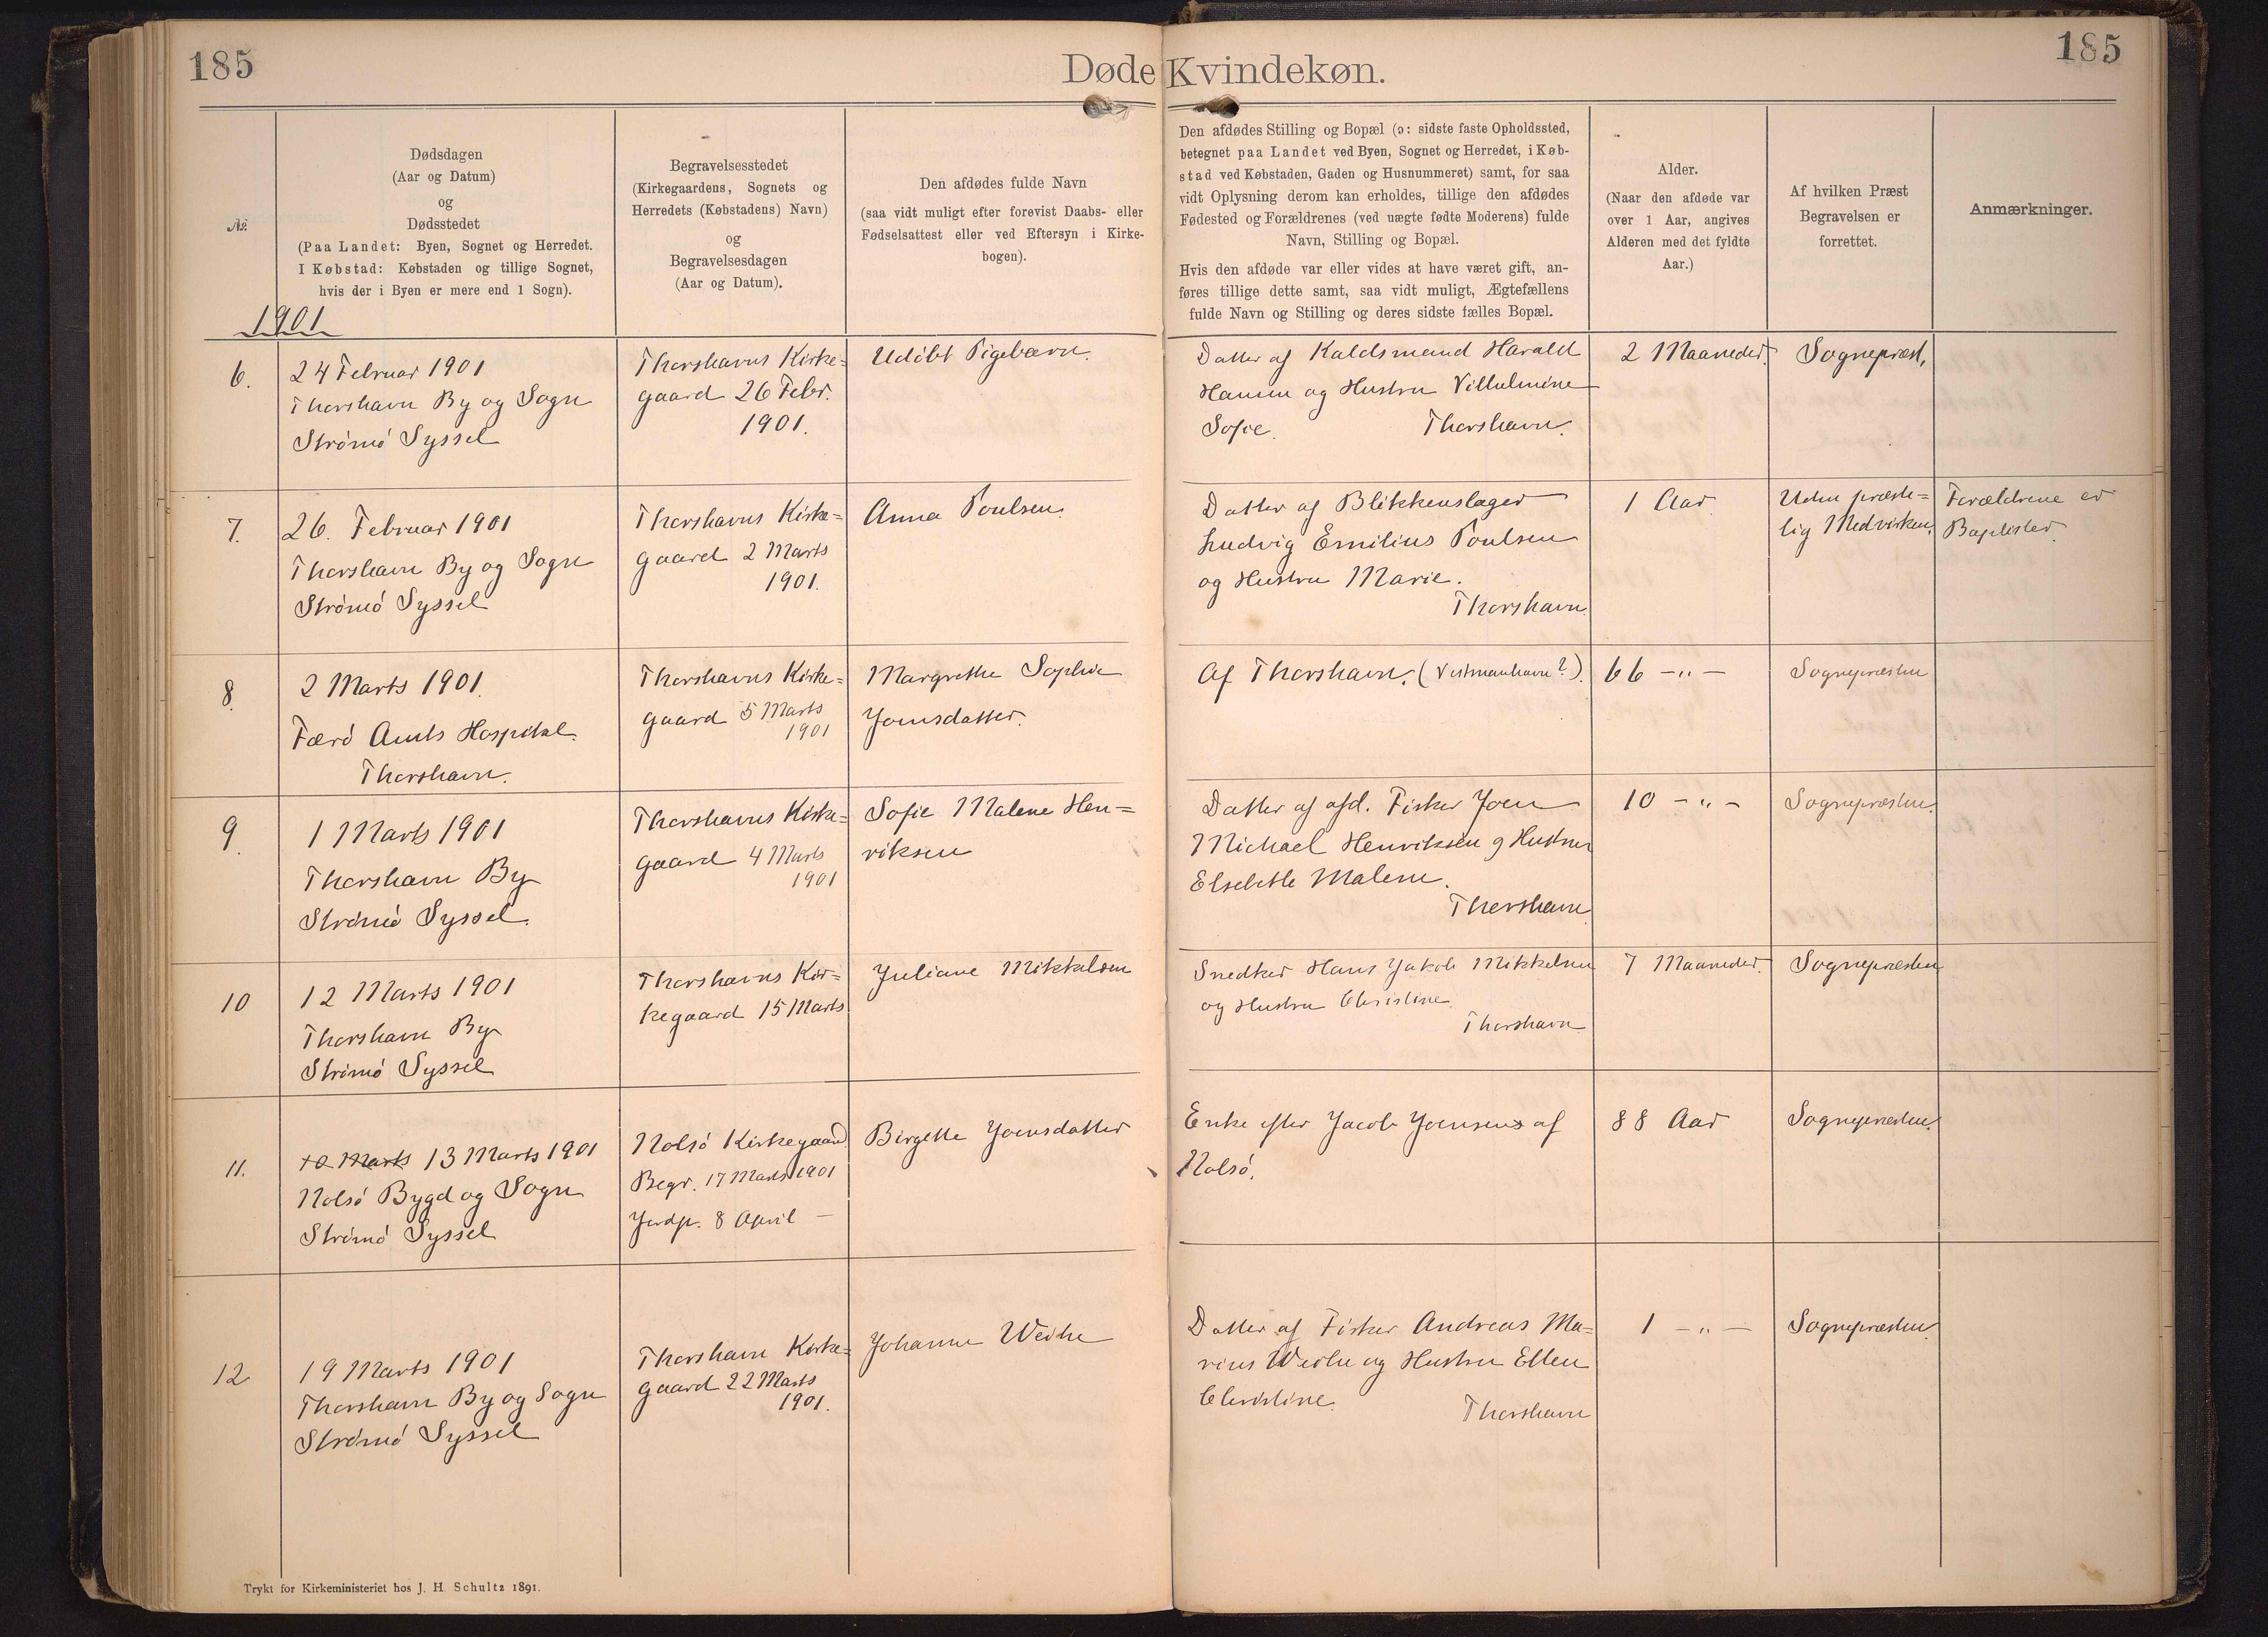 185
Døde Kvindekøn.
185
№
Dødsdagen
(Aar og Datum)
og
Dødsstedet
(Paa Landet: Byen, Sognet og Herredet.
I Købstad: Købstaden og tillige Sognet,
hvis der i Byen er mere end 1 Sogn).
Begravelsesstedet
(Kirkegaardens, Sognets og
Herredets (Købstadens) Navn)
og
Begravelsesdagen
(Aar og Datum).
Den afdødes fulde Navn
(saa vidt muligt efter forevist Daabs- eller
Fødselsattest eller ved Eftersyn i Kirke-
bogen).
Den afdødes Stilling og Bopæl (ɔ: sidste faste Opholdssted,
betegnet paa Landet ved Byen, Sognet og Herredet, i Køb-
stad ved Købstaden, Gaden og Husnummeret) samt, for saa
vidt Oplysning derom kan erholdes, tillige den afdødes
Fødested og Forældrenes (ved uægte fødte Moderens) fulde
Navn, Stilling og Bopæl.
Hvis den afdøde var eller vides at have været gift, an-
føres tillige dette samt, saa vidt muligt, Ægtefællens
fulde Navn og Stilling og deres sidste fælles Bopæl.
Alder.
(Naar den afdøde var
over 1 Aar, angives
Alderen med det fyldte
Aar.)
Af hvilken Præst
Begravelsen er
forrettet.
Anmærkninger.
1901
6.
24 Februar 1901
Thorshavn By og Sogn
Strömö Syssel
Thorshavns Kirke=
gaard 26 Febr.
1901.
Udöbt Pigebarn.
Datter af Kaldsmand Harald
Hansen og Hustru Vilhelmine
Sofie. Thorshavn.
2 Maaneder.
Sognepræst.
7.
26. Februar 1901
Thorshavn By og Sogn
Strömö Syssel
Thorshavns Kirke=
gaard 2 Marts
1901.
Anna Poulsen.
Datter af Blikkenslager
Ludvig Emilius Poulsen
og Hustru Marie.
Thorshavn.
1 Aar.
Uden præste=
lig Medvirken.
Forældrene er
Baptister.
8.
2 Marts 1901.
Færö Amts Hospital.
Thorshavn.
Thorshavns Kirke=
gaard 5 Marts
1901
Margrethe Sophie
Joensdatter.
Af Thorshavn. (Vestmanhavn?).
66 -"-
Sognepræsten
9.
1 Marts 1901
Thorshavn By
Strömö Syssel.
Thorshavns Kirke=
gaard 4 Marts
1901
Sofie Malene Hen=
riksen
Datter af afd. Fisker Joen
Michael Henriksen og Hustru
Elsebeth Malene.
Thorshavn
10 -"-
Sognepræsten.
10
12 Marts 1901
Thorshavn By
Strömö Syssel
Thorshavns Kir=
kegaard 15 Marts
Juliane Mikkelsen
Snedker Hans Jakob Mikkelsen
og Hustru Christine.
Thorshavn.
7 Maaneder.
Sognepræsten
11.
10 Marts 13 Marts 1901
Nolsö Bygd og Sogn
Strömö Syssel
Nolsö Kirkegaard
Begr. 17 Marts 1901
Jordp. 8 April —
Birgette Joensdatter
Enke efter Jacob Joensens af
Nolsö.
88 Aar
Sognepræsten.
12
19 Marts 1901
Thorshavn By og Sogn
Strömö Syssel
Thorshavn Kirke=
gaard 22 Marts
1901.
Johanne Weihe
Datter af Fisker Andreas Ma=
rius Weihe og Hustru Ellen
Christine.
Thorshavn
1 -"-
Sognepræsten.
Trykt for Kirkeministeriet hos J. H. Schultz 1891.